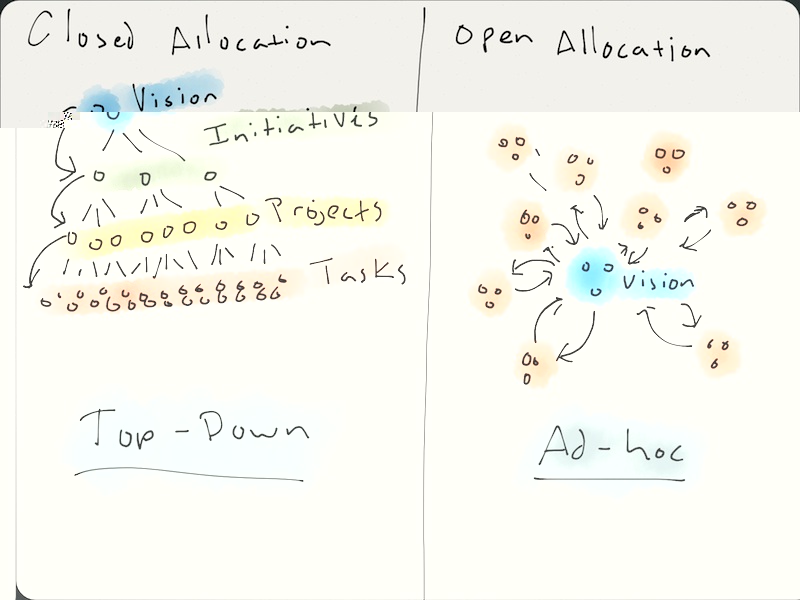 Closed Allocation
Vision
Initiatives
Projects
Tasks
Top-Down
Open Allocation
Vision
Ad-hoc